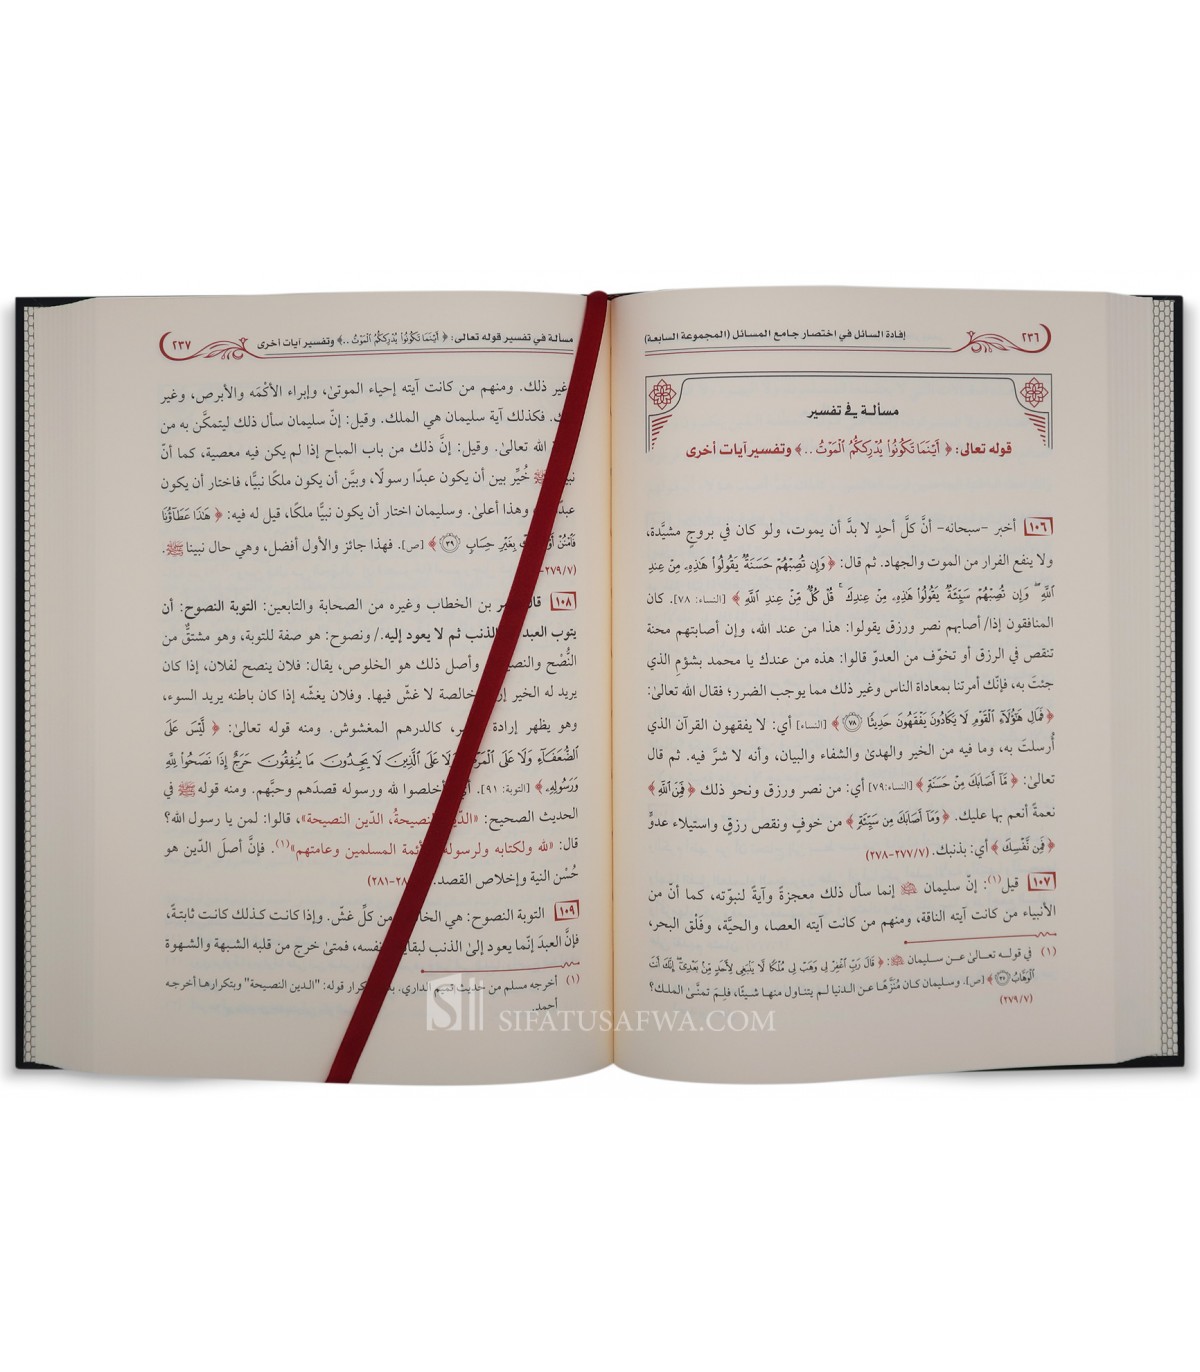 ٢٣٦
إفادة السائل في اختصار جامع المسائل (المجموعة السابعة)
مسألة في تفسير
قوله تعالى: ﴿ أَيْنَمَا تَكُونُوا۟ يُدْرِككُّمُ ٱلْمَوْتُ .. ﴾ وتفسير آيات أخرى
١٠٦ أخبر -سبحانه- أنَّ كلَّ أحدٍ لا بدَّ أن يموت، ولو كان في بروجٍ مشيَّدة،
ولا ينفع الفرار من الموت والجهاد. ثم قال: ﴿ وَإِن تُصِبْهُمْ حَسَنَةٌ يَقُولُوا۟ هَٰذِهِۦ مِنْ عِندِ
ٱللَّهِ ۖ وَإِن تُصِبْهُمْ سَيِّئَةٌ يَقُولُوا۟ هَٰذِهِۦ مِنْ عِندِكَ ۚ قُلْ كُلٌّ مِّنْ عِندِ ٱللَّهِ ﴾ [النساء: ٧٨]. كان
المنافقون إذا/ أصابهم نصر ورزق يقولوا: هذا من عند الله، وإن أصابتهم محنة
تنقص في الرزق أو تخوّف من العدوّ قالوا: هذه من عندك يا محمد بشؤمِ الذي
جئتَ به، فإنّك أمرتنا بمعاداة الناس وغير ذلك مما يوجب الضرر؛ فقال الله تعالىٰ:
﴿ فَمَالِ هَٰٓؤُلَآءِ ٱلْقَوْمِ لَا يَكَادُونَ يَفْقَهُونَ حَدِيثًا ٧٨ ﴾ [النساء] أي: لا يفقهون القرآن الذي
أُرسلتَ به، وما فيه من الخير والهدىٰ والشفاء والبيان، وأنه لا شرَّ فيه. ثم قال
تعالىٰ: ﴿ مَّآ أَصَابَكَ مِنْ حَسَنَةٍ ﴾ [النساء:٧٩] أي: من نصر ورزق ونحو ذلك ﴿ فَمِنَ ٱللَّهِ ﴾
نعمةً أنعم بها عليك. ﴿ وَمَآ أَصَابَكَ مِن سَيِّئَةٍ ﴾ من خوفٍ ونقص رزقٍ واستيلاء عدوٍّ
﴿ فَمِن نَّفْسِكَ ﴾ أي: بذنبك. (٢٧٧/٧-٢٧٨)
١٠٧ قيل(١): إنّ سليمان ﷺ إنما سأل ذلك معجزةً وآيةً لنبوّته، كما أنّ من
الأنبياء من كانت آيته الناقة، ومنهم من كانت آيته العصا، والحيَّة، وفَلْق البحر،
(١) في قوله تعالىٰ عن سليمان ﷺ: ﴿ قَالَ رَبِّ ٱغْفِرْ لِى وَهَبْ لِى مُلْكًا لَّا يَنۢبَغِى لِأَحَدٍ مِّنۢ بَعْدِىٓ ۖ إِنَّكَ أَنتَ
ٱلْوَهَّابُ ٣٥ ﴾ [ص]. وسليمان كان مُنَزَّهًا عن الدنيا لم يتناول منها شيئًا، فلِمَ تمنَّىٰ الملك؟
(٢٧٩/٧)
مسألة في تفسير قوله تعالى: ﴿ أَيْنَمَا تَكُونُوا۟ يُدْرِككُّمُ ٱلْمَوْتُ .. ﴾ وتفسير آيات أخرى
٢٣٧
غير ذلك. ومنهم من كانت آيته إحياء الموتىٰ، وإبراء الأكْمَه والأبرص، وغير
فكذلك آية سليمان هي الملك. وقيل: إنّ سليمان سأل ذلك ليتمكَّن به من
الله تعالىٰ. وقيل: إنَّ ذلك من باب المباح إذا لم يكن فيه معصية، كما أنّ
ﷺ خُيِّر بين أن يكون عبدًا رسولًا، وبيَّن أن يكون ملكًا نبيًّا، فاختار أن يكون
وهذا أعلىٰ. وسليمان اختار أن يكون نبيًّا ملكًا، قيل له فيه: ﴿ هَٰذَا عَطَآؤُنَا
فَٱمْنُنْ بِغَيْرِ حِسَابٍ ٣٩ ﴾ [ص]. فهذا جائز والأول أفضل، وهي حال نبينا ﷺ.
(٢٧٩/٧-
١٠٨ بن الخطاب وغيره من الصحابة والتابعين: التوبة النصوح: أن
يتوب العبد الذنب ثم لا يعود إليه./ ونصوح: هو صفة للتوبة، وهو مشتقٌّ من
النُّصْح والنصيحة وأصل ذلك هو الخلوص، يقال: فلان ينصح لفلان، إذا كان
يريد له الخير خالصة لا غشّ فيها. وفلان يغشّه إذا كان باطنه يريد السوء،
وهو يظهر إرادة كالدرهم المغشوش. ومنه قوله تعالىٰ: ﴿ لَّيْسَ عَلَى
ٱلضُّعَفَآءِ وَلَا عَلَى وَلَا عَلَى ٱلَّذِينَ لَا يَجِدُونَ مَا يُنفِقُونَ حَرَجٌ إِذَا نَصَحُوا۟ لِلَّهِ
وَرَسُولِهِۦ ﴾ [التوبة: ٩١]. أخلصوا لله ورسوله قصدَهم وحبَّهم. ومنه قوله ﷺ في
الحديث الصحيح: «الدِّين النصيحةُ، الدّين النصيحة»، قالوا: لمن يا رسول الله؟
قال: «لله ولكتابه ولرسوله أئمة المسلمين وعامتهم»(١). فإنَّ أصلَ الدّين هو
حُسْن النية وإخلاص القصد. -٢٨١)
١٠٩ التوبة النصوح: هي من كلِّ غشّ. وإذا كانت كذلك كانت ثابتةً،
فإنَّ العبدَ إنّما يعود إلىٰ الذنب لبقايا نفسه، فمتىٰ خرج من قلبه الشبهة والشهوة
(١) أخرجه مسلم من حديث تميم الداري. تكرار قوله: "الدين النصيحة" وبتكرارها أخرجه
أحمد.
SIFATUSAFWA.COM